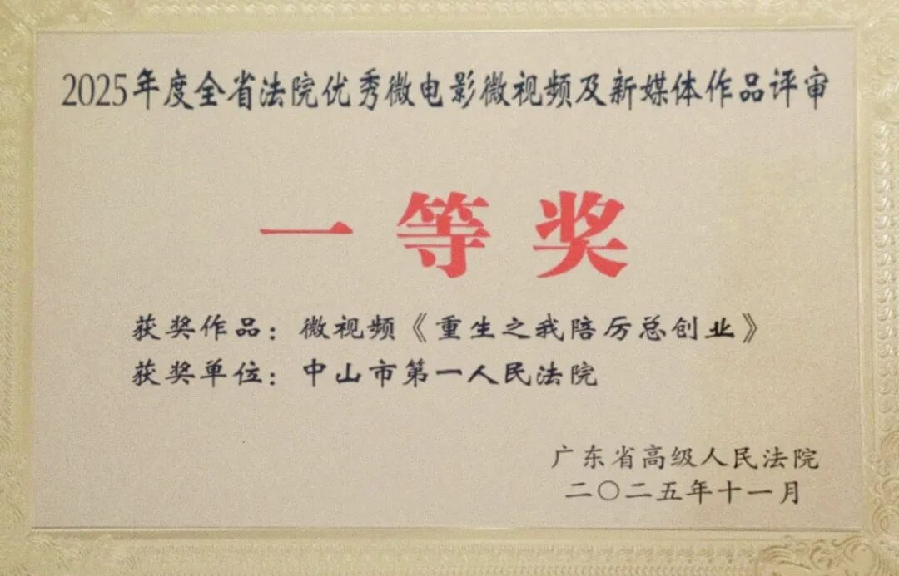 2025年度全省法院优秀微电影微视频及新媒体作品评审
一等奖
获奖作品：微视频《重生之我陪厉总创业》
获奖单位：中山市第一人民法院
广东省高级人民法院
二〇二五年十一月